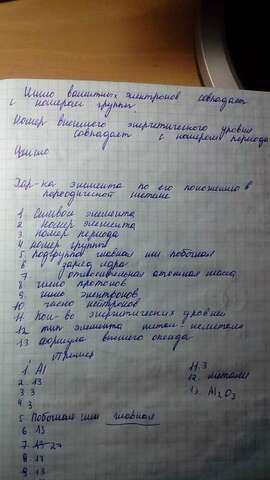 Число валитных электронов совпадает
с номером группы.
Номер внешнего энергетического уровня
совпадает с номером периода
Число
Хар-ка элемента по его положению в
периодической системе
1. Символ элемента
2. Номер элемента
3. номер периода
4. номер группы
5. подгруппа главная или побочная
6. заряд ядра
7. относительная атомная масса
8. число протонов
9. число электронов
10. число нейтронов
11. Кол-во энергетических уровней
12. тип элемента метал-неметалл
13. формула высшего оксида
Пример
1. Al
2. 13
3. 3
4. 3
5. Побочная или главная
6. 13
7. 27
8. 13
9. 13
11. 3
12. металл
13. Al2O3